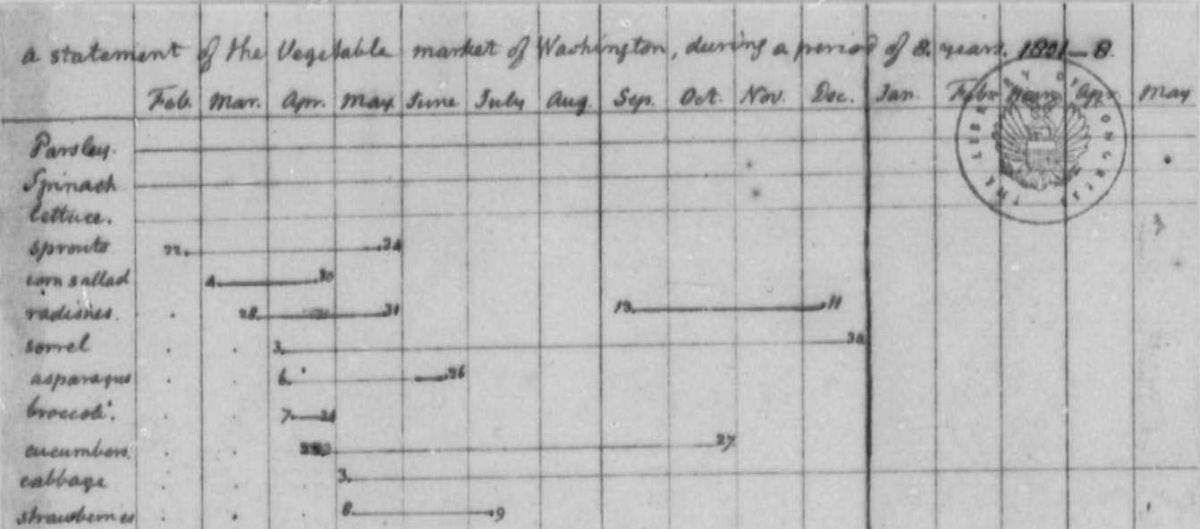 a statement of the Vegetable market of Washington, during a period of 8. years. 1801–8.
Feb. Mar. Apr. May June July Aug. Sep. Oct. Nov. Dec. Jan. Feb. Apr. May
Parsley.
Spinach
lettuce.
sprouts 22. 24
corn sallad 4 30
radishes. 28. 31 13 11
sorrel 3.
asparagus 6. 26
broccoli. 7
cucumbers. 27
cabbage 3.
strawberries 8 9
THE LIBRARY OF CONGRESS